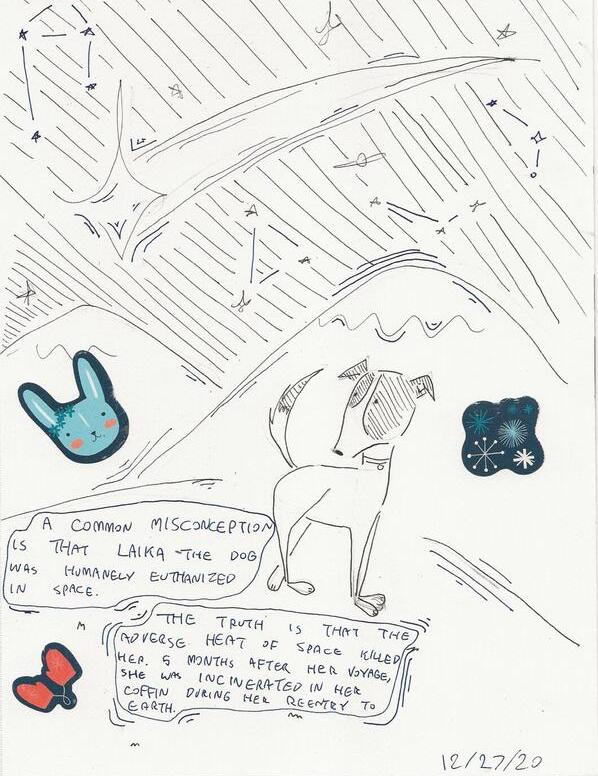 A COMMON MISCONCEPTION
IS THAT LAIKA THE DOG
WAS HUMANELY EUTHANIZED
IN SPACE.
THE TRUTH IS THAT THE
ADVERSE HEAT OF SPACE KILLED
HER. 5 MONTHS AFTER HER VOYAGE,
SHE WAS INCINERATED IN HER
COFFIN DURING HER REENTRY TO
EARTH.
12/27/20